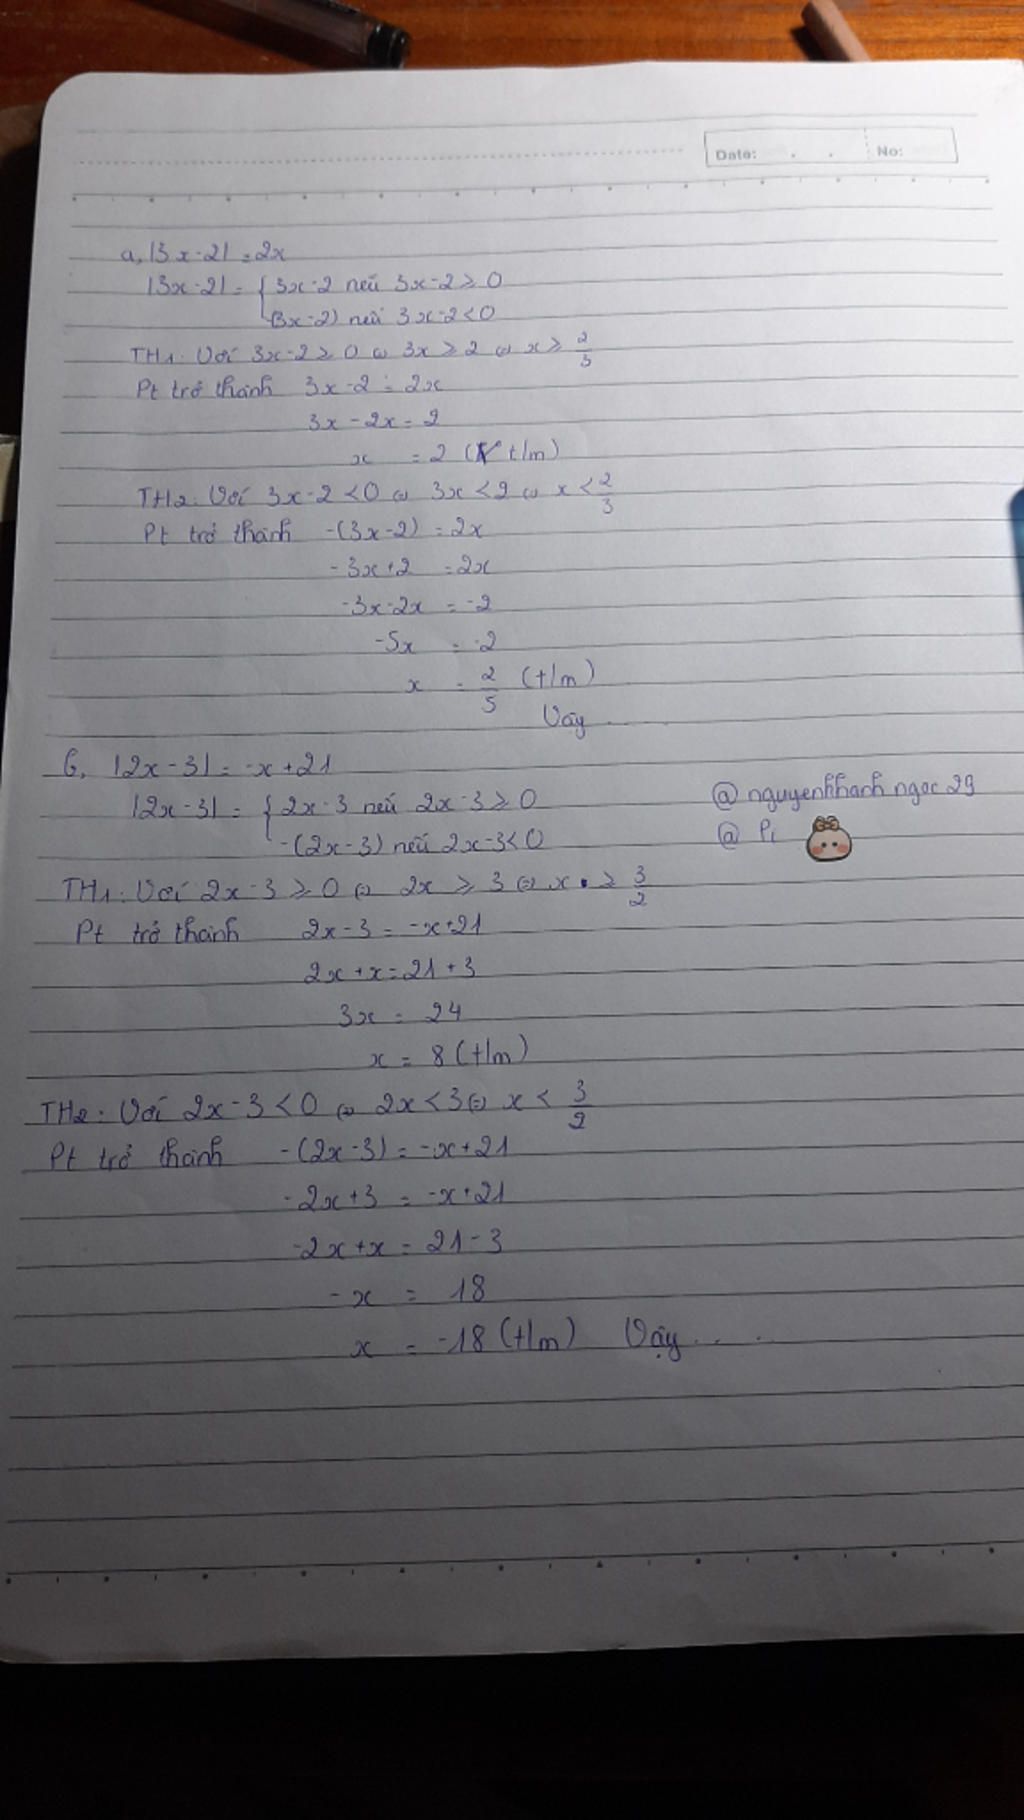 Date: . . No:
a, |3x-2| = 2x
|3x-2| = { 3x-2 nếu 3x-2 ⩾ 0
-(3x-2) nếu 3x-2 < 0
TH1: Với 3x-2 ⩾ 0 ⇔ 3x ⩾ 2 ⇔ x ⩾ 2/3
Pt trở thành 3x-2 = 2x
3x - 2x = 2
x = 2 (t/m)
TH2: Với 3x-2 < 0 ⇔ 3x < 2 ⇔ x < 2/3
Pt trở thành -(3x-2) = 2x
-3x+2 = 2x
-3x-2x = -2
-5x = -2
x = 2/5 (t/m)
Vậy ....
b, |2x-3| = -x+21
|2x-3| = { 2x-3 nếu 2x-3 ⩾ 0
-(2x-3) nếu 2x-3 < 0
@ nguyenkhanh ngoc 29
@ Pi
TH1: Với 2x-3 ⩾ 0 ⇔ 2x ⩾ 3 ⇔ x ⩾ 3/2
Pt trở thành 2x-3 = -x+21
2x+x = 21+3
3x = 24
x = 8 (t/m)
TH2: Với 2x-3 < 0 ⇔ 2x < 3 ⇔ x < 3/2
Pt trở thành -(2x-3) = -x+21
-2x+3 = -x+21
-2x+x = 21-3
-x = 18
x = -18 (t/m) Vậy ....